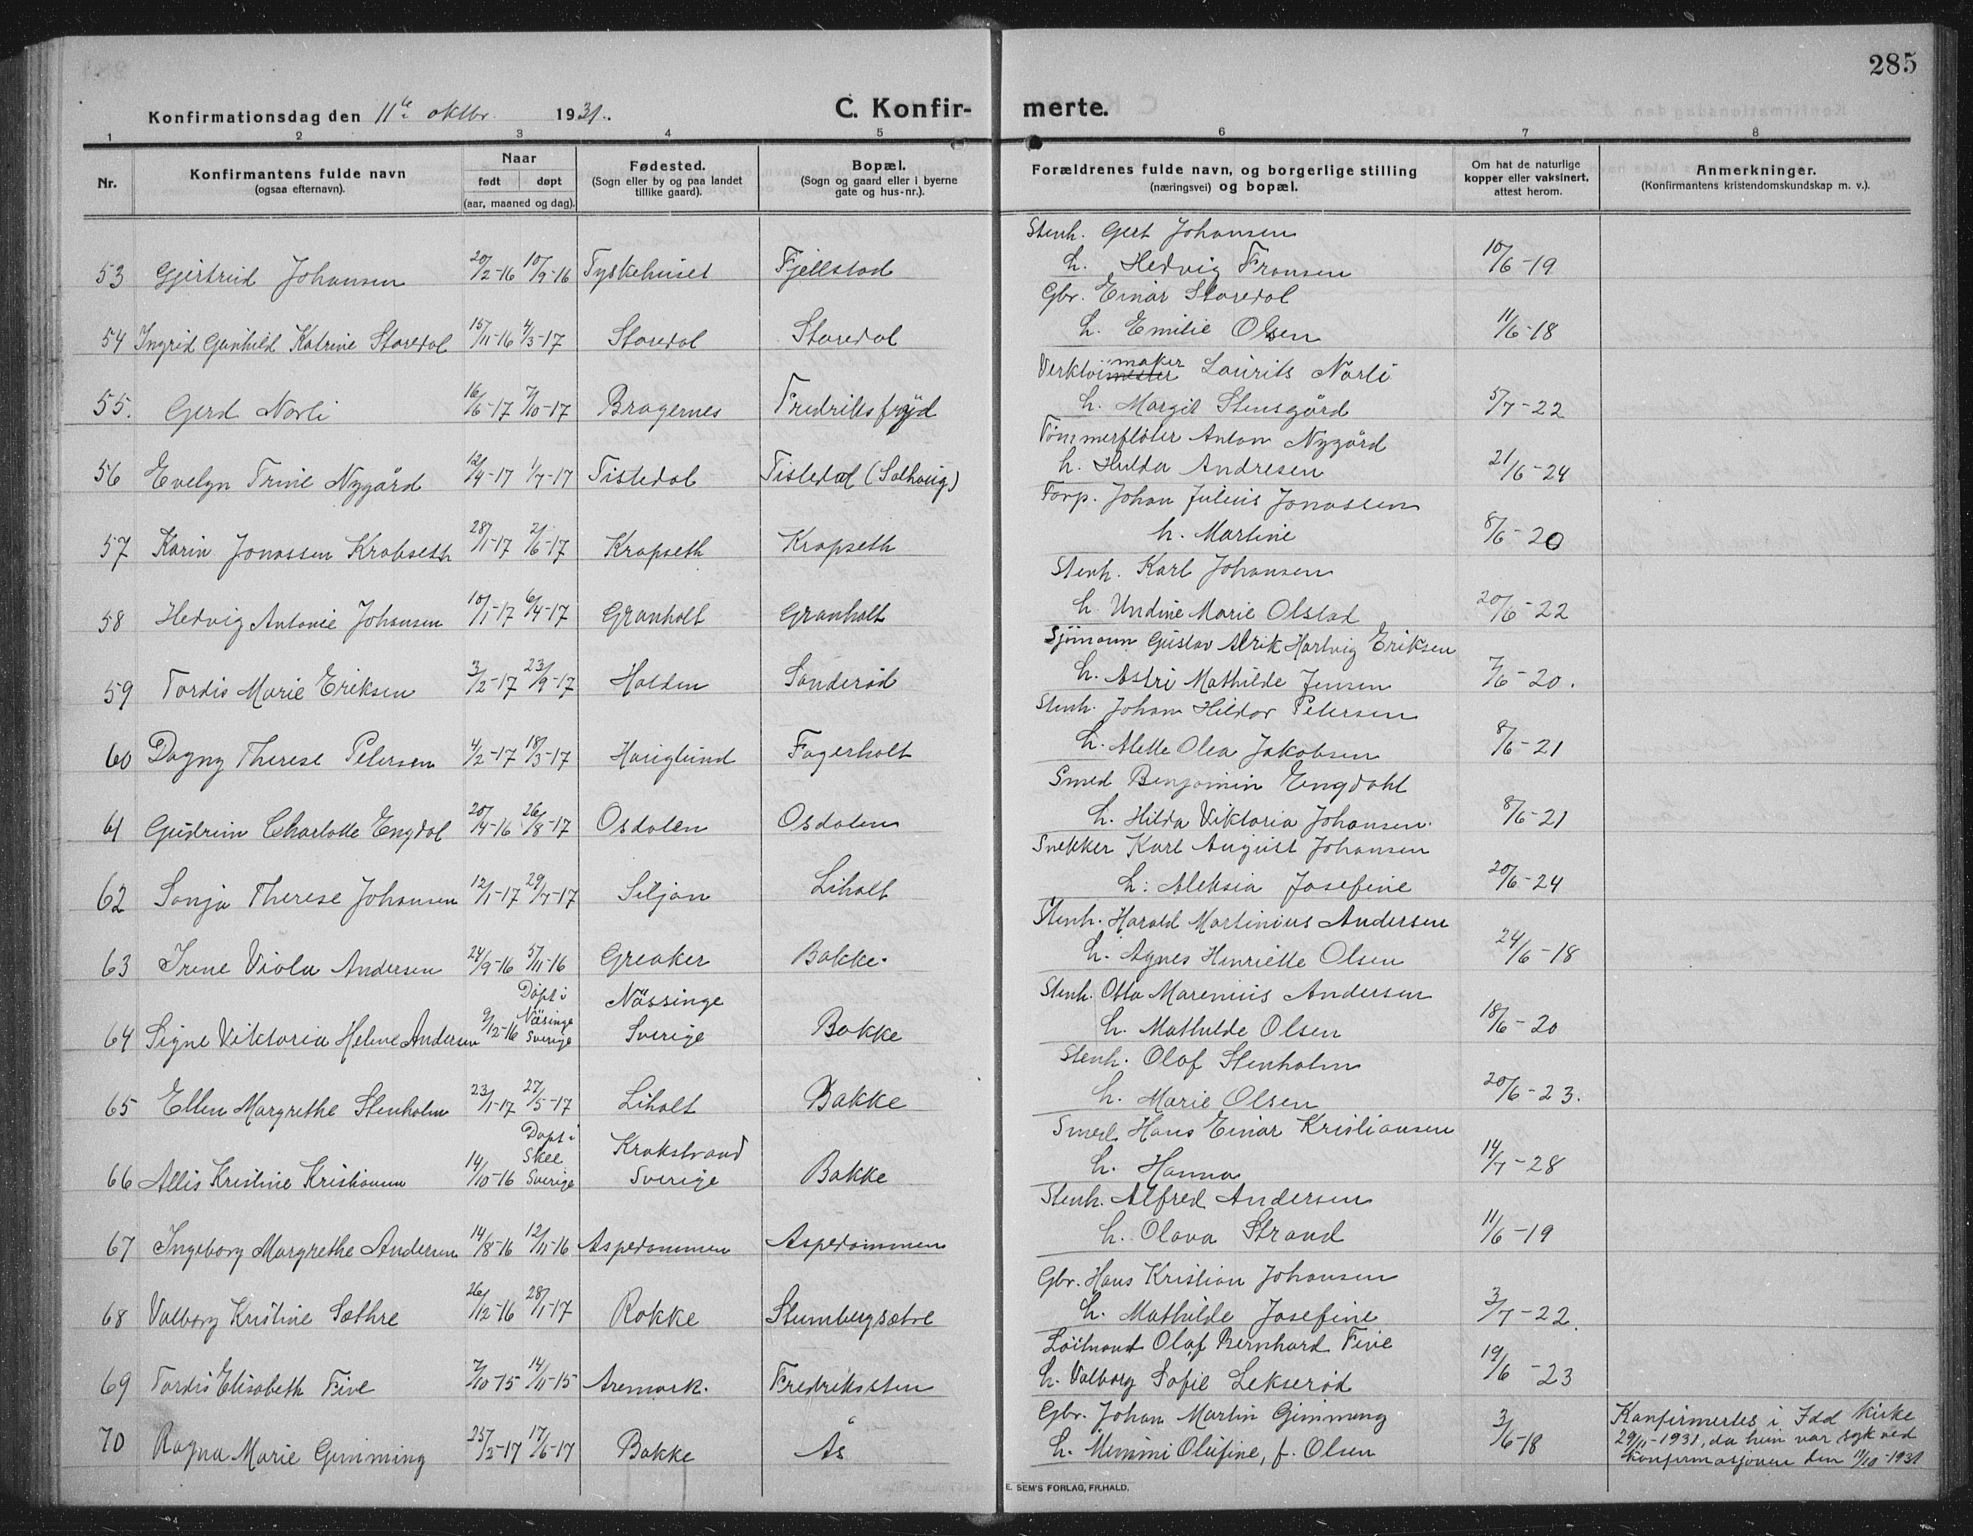 285
Konfirmationsdag den 11te oktbr. 1931. C. Konfir- merte.
1 2 3 4 5 6 7 8
Nr. Konfirmantens fulde navn (ogsaa efternavn). Naar født døpt (aar, maaned og dag). Fødested. (Sogn eller by og paa landet tillike gaard). Bopæl. (Sogn og gaard eller i byerne gate og hus-nr.). Forældrenes fulde navn, og borgerlige stilling (næringsvei) og bopæl. Om hat de naturlige kopper eller vaksinert, attest herom. Anmerkninger. (Konfirmantens kristendomskundskap m. v.).
Stenh. Gert Johansen
53 Gjertrud Johansen 20/2-16 10/9-16 Tyskehuset Fjellstad h. Hedvig Fransen 10/6-19
Gbr. Einar Staredal
54 Ingrid Gunhild Katrine Staredal 15/11-16 4/3-17 Staredal Staredal h. Emilie Olsen 11/6-18
Verktöimaker Laurits Narli
55. Gerd Narli 16/6-17 7/10-17 Bragernes Fredriksfryd h. Margit Stensgård 5/7-22
Tömmerflöter Anton Nygård
56 Evelyn Trine Nygård 12/4-17 1/7-17 Tistedal Tistedal (Solhaug) h. Hulda Andresen 21/6-24
Torp. Johan Julius Jonassen
57 Karin Jonassen Krabseth 28/1-17 2/6-17 Krapseth Krapseth h. Martine 8/6-20
Stenh. Karl Johansen
58 Hedvig Antonie Johansen 10/1-17 6/4-17 Granholt Granholt h. Undine Marie Olstad 20/6-22
Sjömann Gustav Alrik Hartvig Eriksen
59 Tordis Marie Eriksen 3/2-17 23/9-17 Halden Sanderöd h. Astri Mathilde Jensen 7/6-20.
Stenh. Johan Hildor Petersen
60 Dagny Therese Petersen 4/2-17 18/3-17 Hauglund Fagerholt h. Mette Olea Jakobsen 8/6-21
Smed Benjamin Engdahl
61 Gudrun Charlotte Engdal 20/4-16 26/8-17 Osdalen Osdalen h. Hilda Viktoria Johansen. 8/6-21
Snekker Karl August Johansen
62 Sonja Therese Johansen 12/1-17 29/7-17 Siljan Liholt h: Aleksia Josefine 20/6-24
Stenh. Harald Martinius Andersen
63 Irene Viola Andersen 24/9-16 5/11-16 Greaker Bakke. h. Agnes Henriette Olsen 24/6-18
Döpt i Nässinge Stenh. Otto Marenius Andersen
64 Signe Viktoria Helene Andersen 9/12-16 Näsinge Sverige Sverige Bakke h. Mathilde Olsen 18/6-20
Stenh. Olaf Stenholm
65 Ellen Margrethe Stenholm 23/1-17 27/5-17 Liholt Bakke h. Marie Olsen 20/6-23.
Döpt i Skee Krokstrand Smed Hans Einar Kristiansen
66 Allis Kristine Kristiansen 14/10-16 Sverige Sverige Bakke h. Hanna 14/7-28
Stenh. Alfred Andersen
67 Ingeborg Margrethe Andersen 14/8-16 12/11-16 Aspedammen Aspedammen h. Olava Strand 11/6-19
Gbr. Hans Kristian Johansen
68 Valborg Kristine Sæthre 26/12-16 28/1-17 Rokke Stumbergsætre h. Mathilde Josefine 3/7-22.
Löitnand Olaf Bernhard Five
69 Tordis Elisabeth Five 7/10-15 14/11-15 Aremark. Fredriksten h. Valborg Sofie Lekseröd 19/6-23
Gbr. Johan Martin Gimming Konfirmertes i Idd kirke
70 Ragna Marie Gimming 25/2-17 17/6-17 Bakke Ås h. Mimmi Olufine, f. Olsen 3/6-18 29/11-1931, da hun var syk ved
konfirmasjonen den 11/10-1931
E. SEM'S FORLAG, FR.HALD.